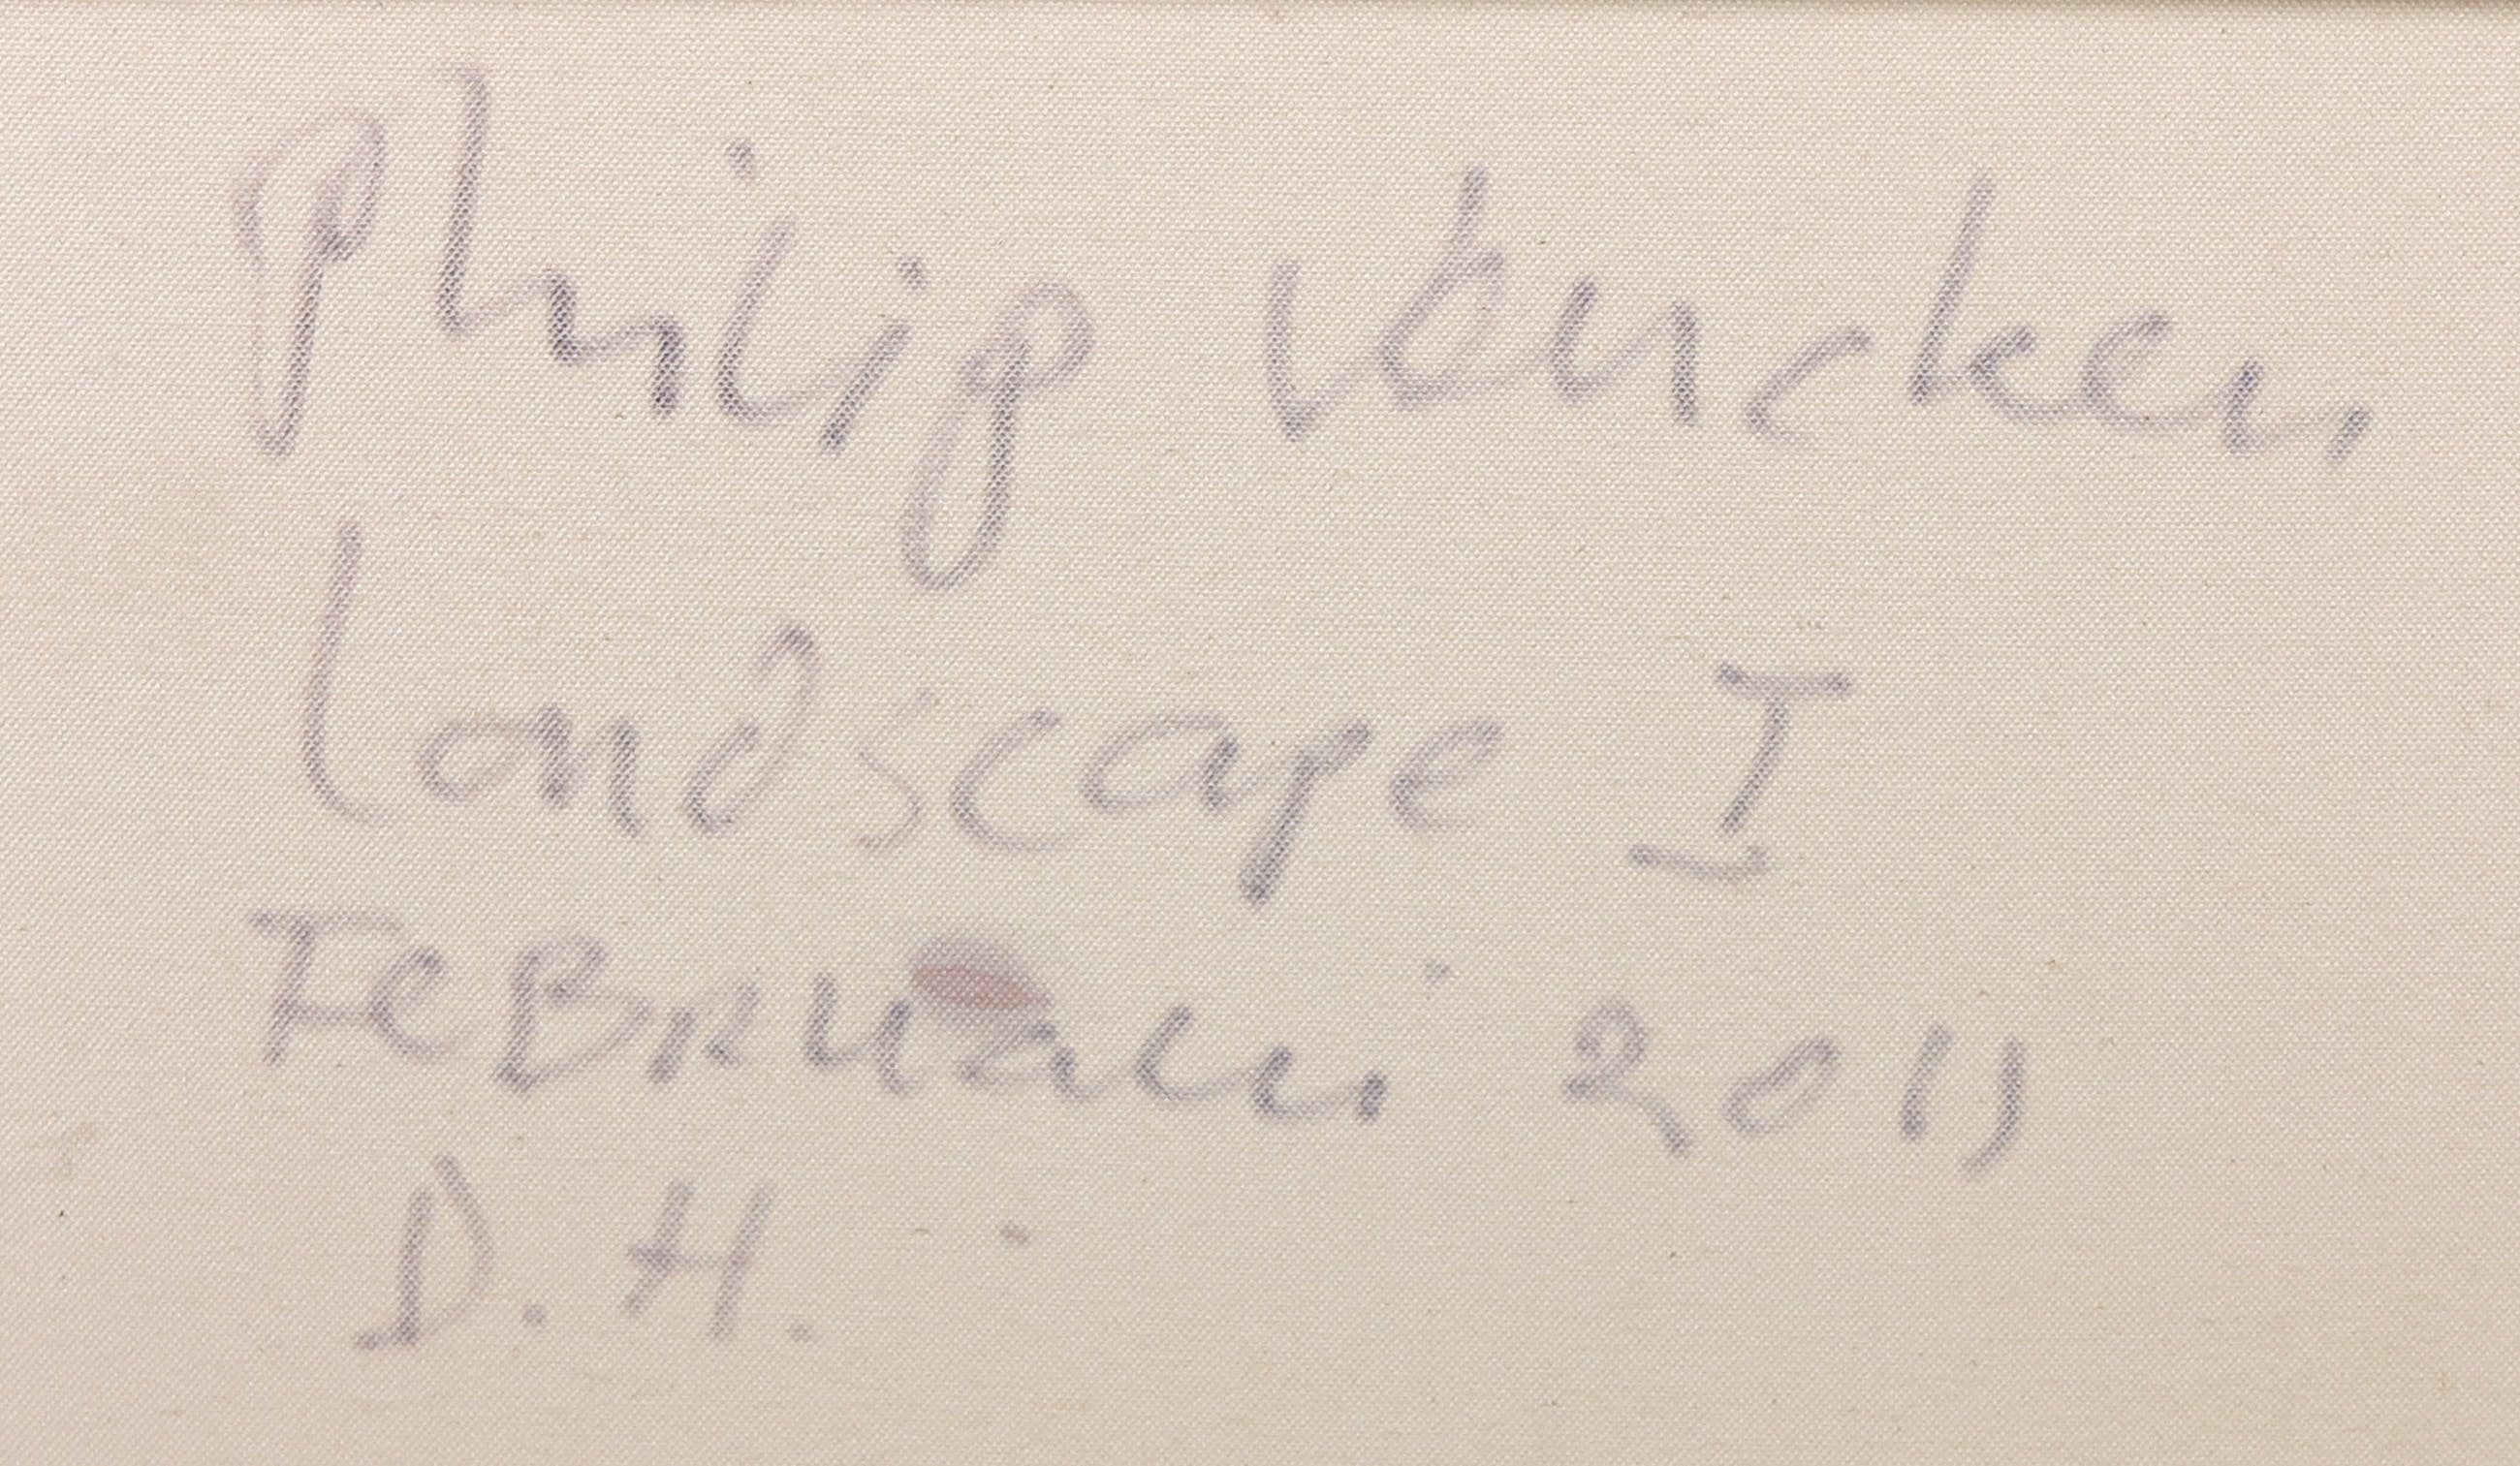 Philip Vencken
Landscape I
FeBRuari 2011
D.H.